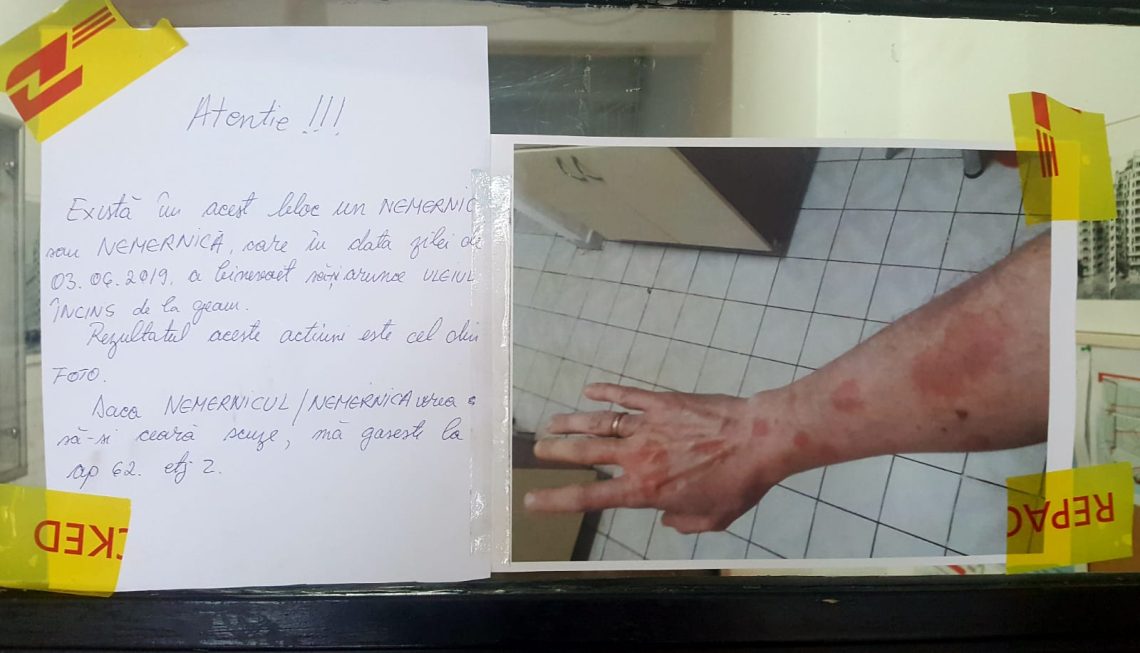 Atentie !!!
Există în acest bloc un NEMERNIC
sau NEMERNICĂ, care în data zilei de
03.06.2019. a binevoit să-și arunce ULEIUL
ÎNCINS de la geam.
Rezultatul aceste actiuni este cel din
FOTO.
Daca NEMERNICUL/NEMERNICA vrea
să-si ceară scuze, mă gaseste la
ap 62. etj 2.
CKED
REPAC